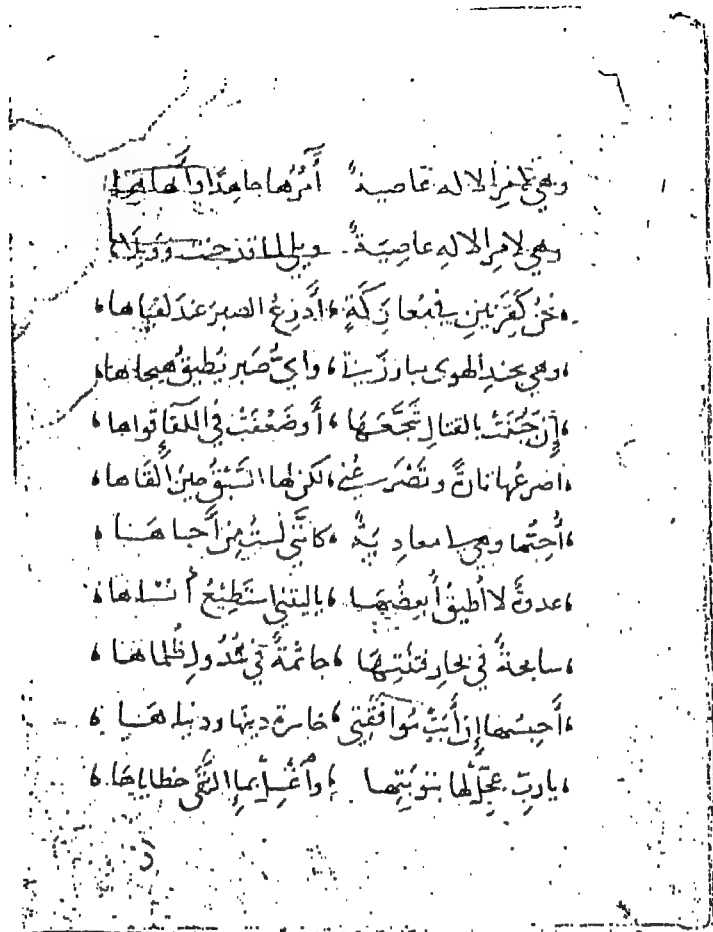 وهي لامر الاله عاصية آمُرُها جاهدًا وأنهاها
وهي لامرِ الالهِ عاصِيَةً ويلي لما قد جنت
نحن كقرنين في معاركةٍ أدرع الصبرَ عند لقياها
وهي بجند الهوى تبارزني واي صبرٍ يُطيق هيجاها
إن جبنت بالقتال شجعها أوضعُفَت في اللقا قواها
اصرعها تارةً وتصرعني لكن لها السبق حين ألقاها
أحبها وهي لي معادية كأنني لست من أحباها
عدوةً لا أطيق أبغضها ياليتني استطيع أنساها
سابحةً في بحار فتنتها جاثمةً في سُدُول ظلماها
أحسبها إن أبت موافقتي خاسرة دينها ودنياها
يارب عجل لها بتوبتها وأغسل بما التقى خطاياها